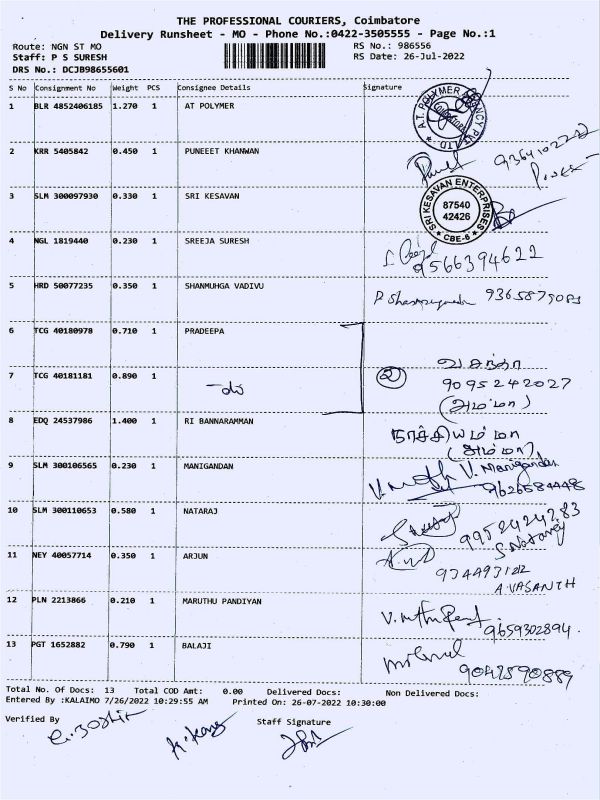 THE PROFESSIONAL COURIERS, Coimbatore
Delivery Runsheet - MO - Phone No.:0422-3505555 - Page No.:1
Route: NGN ST MO
RS No.: 986556
Staff: P S SURESH
RS Date: 26-Jul-2022
DRS No.: DCJB98655601
S No Consignment No Weight PCS Consignee Details Signature
1 BLR 4852406185 1.270 1 AT POLYMER
A.T. POLYMER AGENCY PVT LTD
2 KRR 5405842 0.450 1 PUNEEET KHANWAN
3 SLM 300097930 0.330 1 SRI KESAVAN
SRI KESAVAN ENTERPRISES
87540
42426
CBE-6
4 NGL 1819440 0.230 1 SREEJA SURESH
9566394622
5 HRD 50077235 0.350 1 SHANMUHGA VADIVU
6 TCG 40180978 0.710 1 PRADEEPA
7 TCG 40181181 0.890 1
2 வசந்தா
9095242027
(அம்மா)
8 EDQ 24537986 1.400 1 RI BANNARAMMAN
நாச்சியம்மா
(அம்மா)
9 SLM 300106565 0.230 1 MANIGANDAN
V. Manigandan
9626584448
10 SLM 300110653 0.580 1 NATARAJ
9952424283
S. Nataraj
11 NEY 40057714 0.350 1 ARJUN
A. VASANTH
12 PLN 2213866 0.210 1 MARUTHU PANDIYAN
9659302894
13 PGT 1652882 0.790 1 BALAJI
9047590889
Total No. Of Docs: 13 Total COD Amt: 0.00 Delivered Docs: Non Delivered Docs:
Entered By :KALAIMO 7/26/2022 10:29:55 AM Printed On: 26-07-2022 10:30:00
Verified By Staff Signature